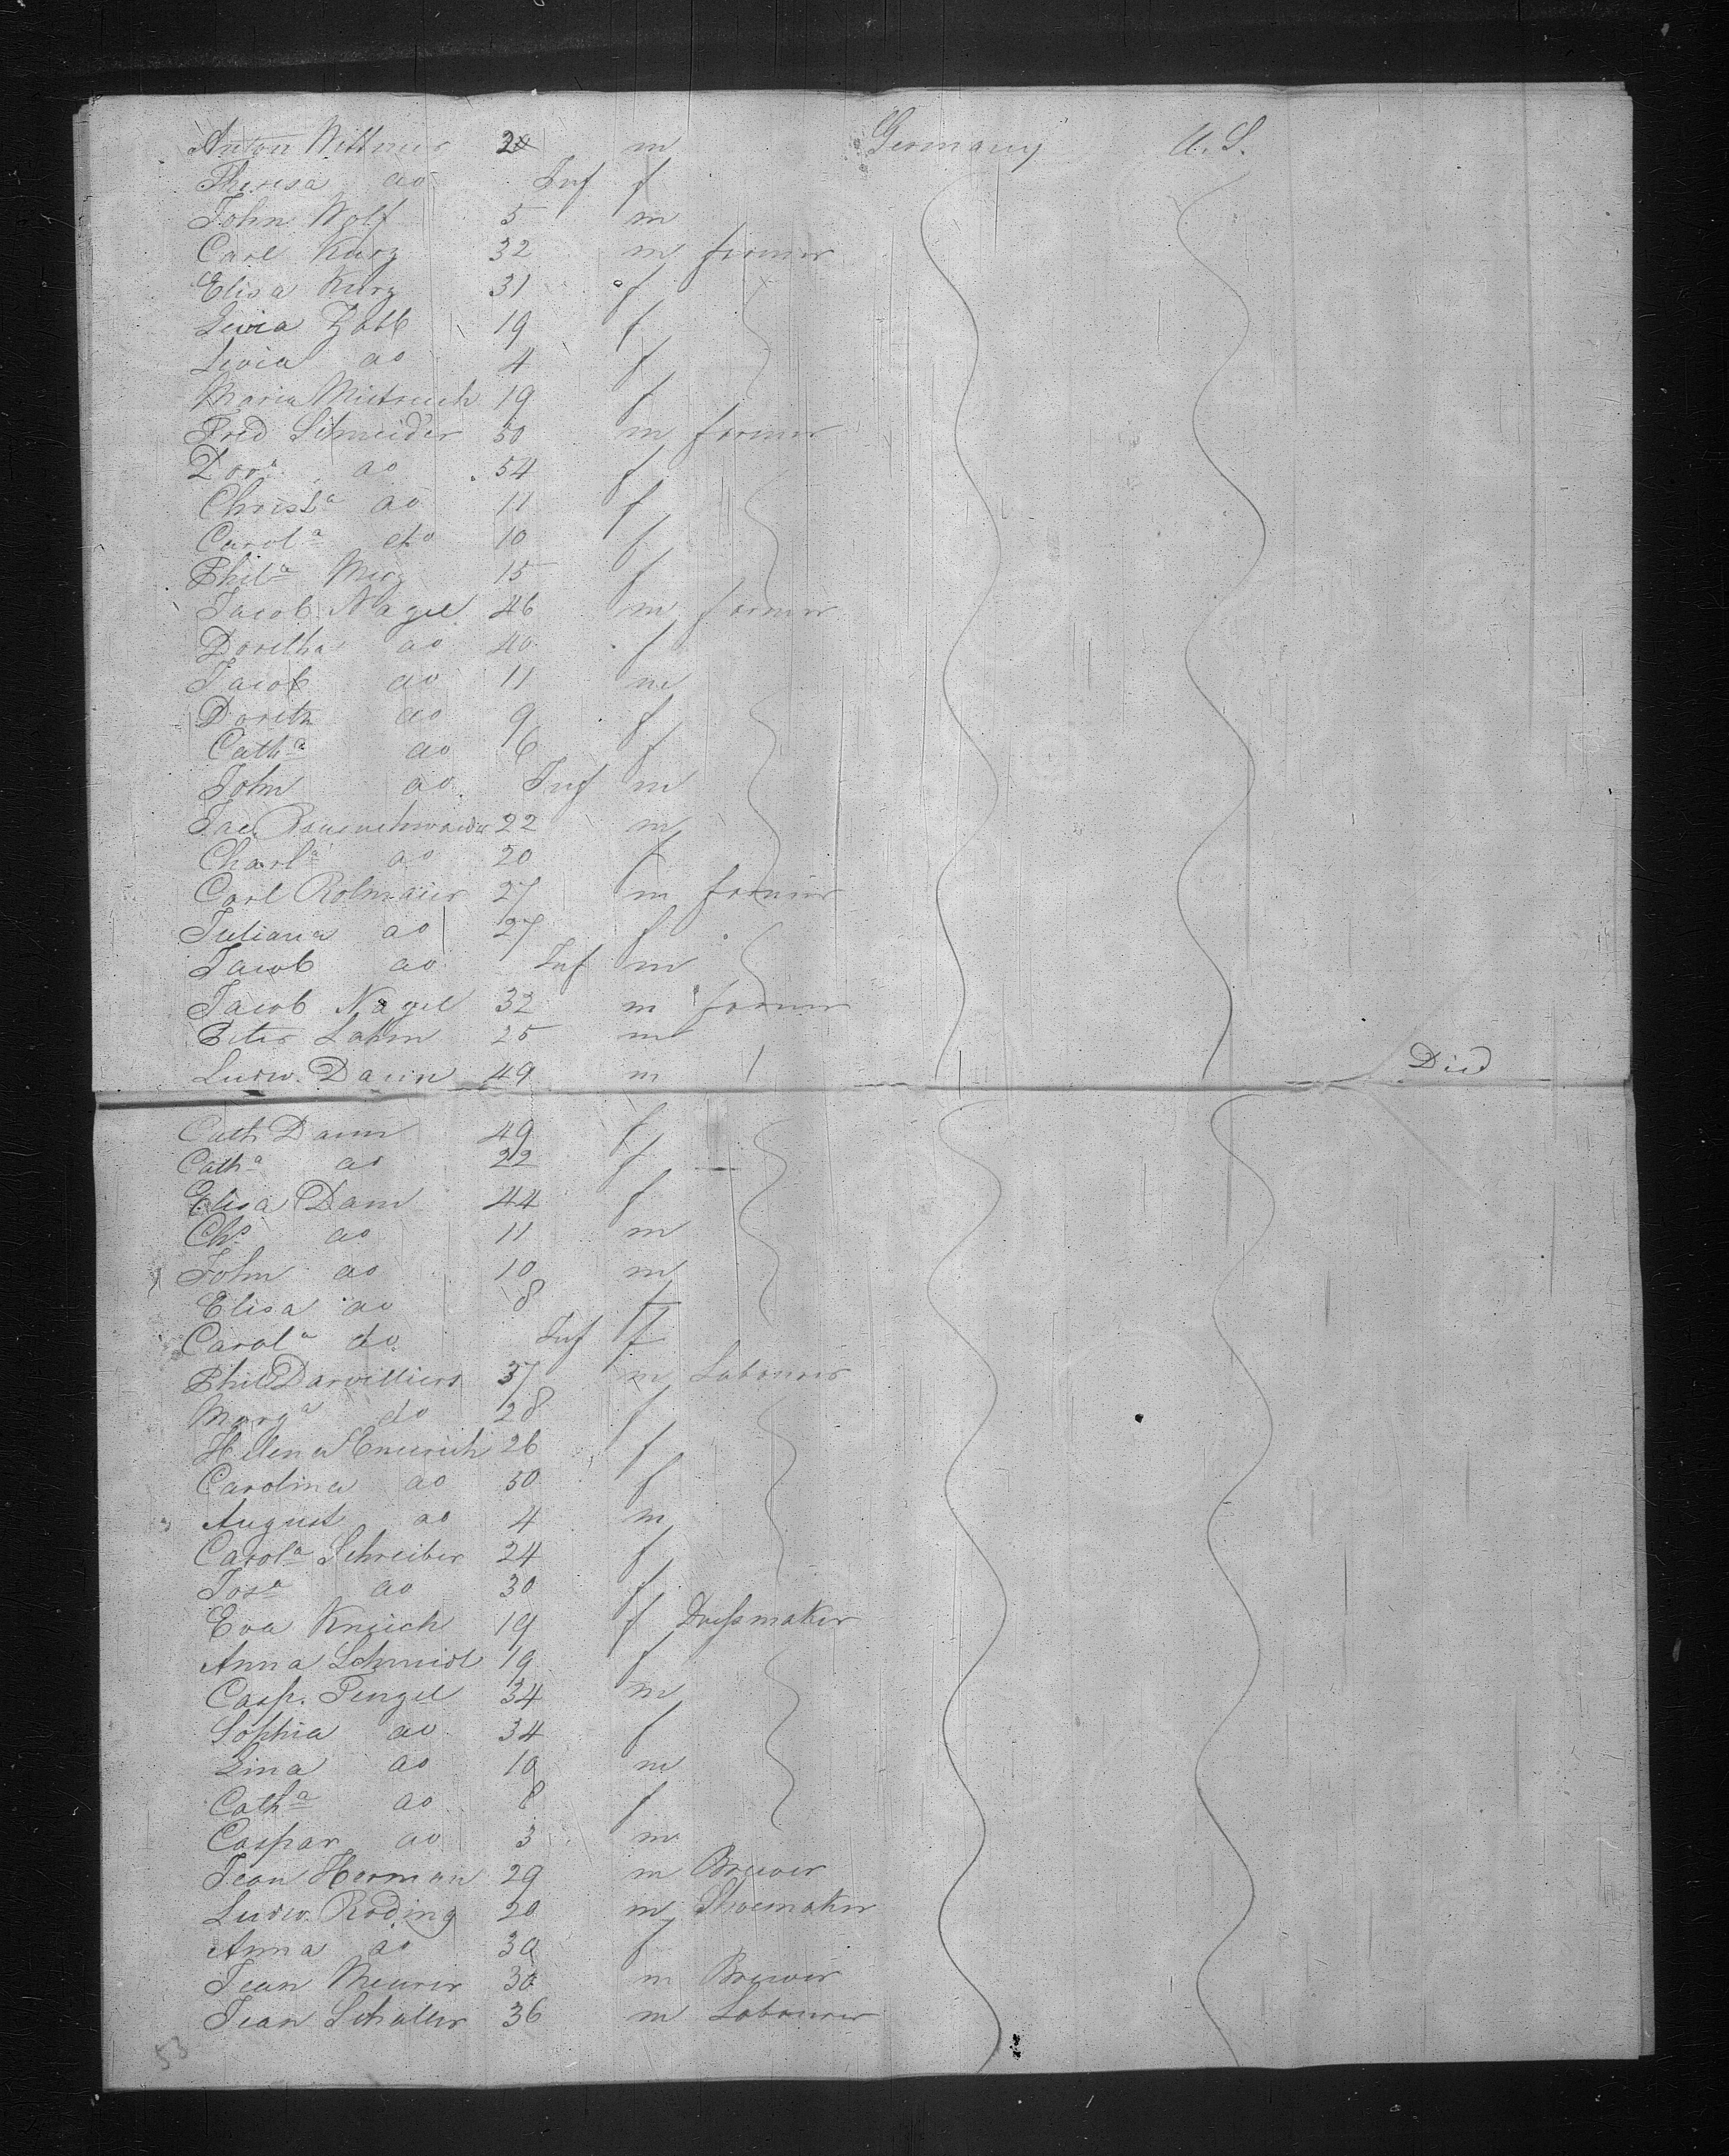 Anton Wittmer 20 m Germany U.S.
Theresa do Inf f
John Wolf 5 m
Carl Kurz 32 m farmer
Elisa Kurz 31 f
19 f
do 4 f
Maria 19 f
Fred Schneider 50 m farmer
Dora do 54 f
Christa do 11 f
Carola do 10 f
Phila Merz 15 f
Jacob Nagel 46 m farmer
Doretha do 40 f
Jacob do 11 m
Doreth do 9 f
Catha do 6 f
John do Inf m
Jac. 22 m
Charla do 20 f
Carl Rolmaier 27 m farmer
Juliana do 27 f
Jacob do Inf m
Jacob Nagel 32 m farmer
Peter Lahm 25 m
Ludw. Daum 49 m Died
Cath Daum 49 f
Catha do 22 f
Elisa Dam 44 f
Chs do 11 m
John do 10 m
Elisa do 8 f
Carola do Inf f
Phil Darvilliers 37 m Labourer
Marga do 28 f
Helena Emerich 26 f
Carolina do 50 f
August do 4 m
Carola Schreiber 24 f
Josa do 30 f
Eva Kneich 19 f Dressmaker
Anna Schmidt 19 f
Casp. Pengel 34 m
Sophia do 34 f
Lina do 10 m
Catha do 8 f
Caspar do 3 m
Jean Herman 29 m Brewer
Ludw. Roding 20 m Shoemaker
Anna do 30 f
Jean Meurer 30 m Brewer
Jean Schaller 36 m Labourer
53